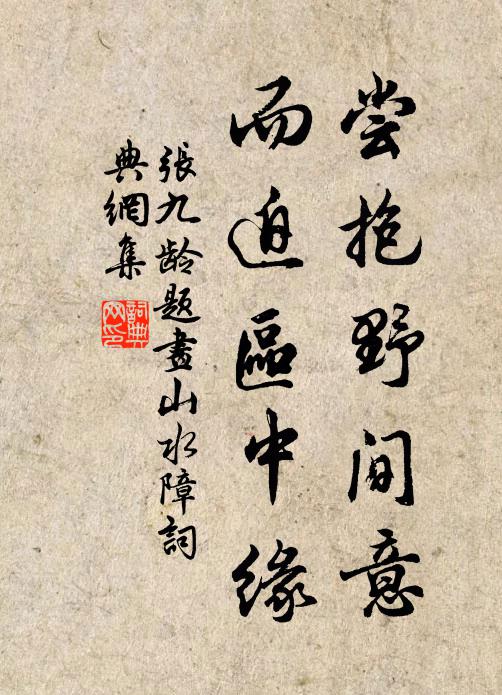 尝抱野间意
而迫區中緣
張九龄題畫山水障詞
典網集
詞典網印